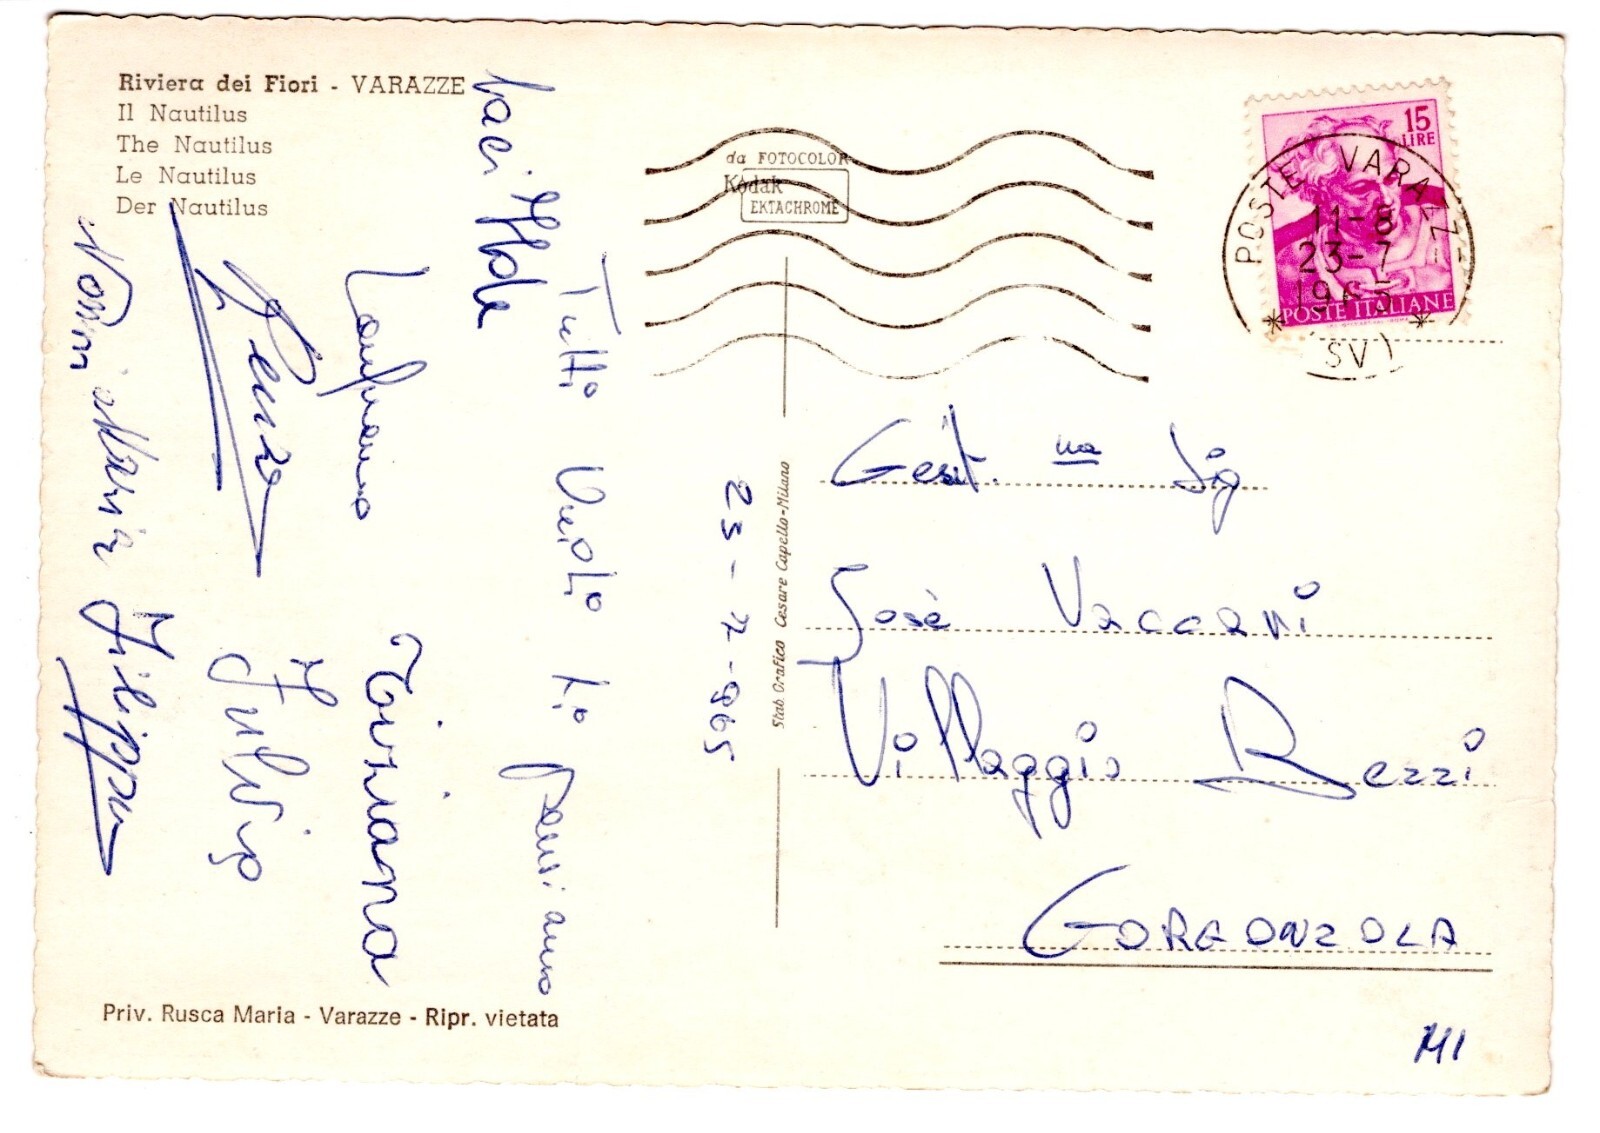 Riviera dei Fiori - VARAZZE
Il Nautilus
The Nautilus
Le Nautilus
Der Nautilus
da FOTOCOLOR
Kodak
EKTACHROME
15
LIRE
POSTE ITALIANE
POSTE VARAZZE
11-8
23-7
1965
(SV)
23-7-965
Tutto
baci Ilde
Renzo
Tiziana
Fulvio
Maria
Gent.ma Sig
Josè Vaccari
Villaggio Bezzi
GORGONZOLA
MI
Stab. Grafico Cesare Capello-Milano
Priv. Rusca Maria - Varazze - Ripr. vietata